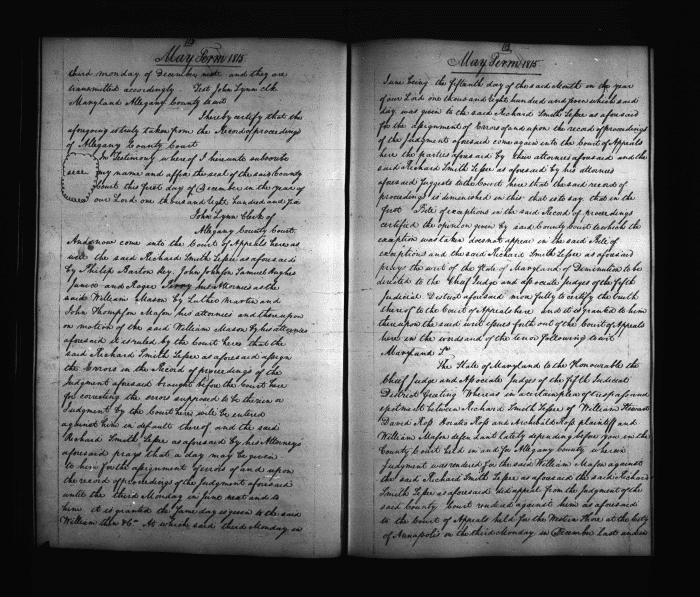 May Term 1815
third monday of December next and they are
transmitted accordingly. Test John Lynn clk
Maryland Allegany County to wit
I hereby certify that the
aforegoing is truly taken from the Record of proceedings
of Allegany County Court
In Testimony whereof I hereunto subscribe
seal my name and affix the seal of the said County
Court this first day of December in the year of
our Lord one thousand eight hundred and
John Lynn Clerk of
Allegany County Court
And now come into the Court of Appeals here as
well the said Richard Smith Lessee as aforesaid
by Philip Barton Key, John Johnson Samuel Hughes
Junior and Roger Perry his Attornies as the
said William Mason by Luther Martin and
John Thompson Mason his attornies and thereupon
on motion of the said William Mason by his attornies
aforesaid it is ruled by the court here that the
said Richard Smith Lessee as aforesaid assign
the Errors in the Record of proceedings of the
Judgment aforesaid brought before the Court here
for correcting the errors supposed to be therein or
Judgment by the Court here will be entered
against him in default thereof and the said
Richard Smith Lessee as aforesaid by his Attorneys
aforesaid prays that a day may be given
to him for the assignment of errors of and upon
the record of proceedings of the Judgment aforesaid
until the third Monday in June next and to
him it is granted the same day is given to the said
William then &c. At which said third Monday in
May Term 1815
June being the fifteenth day of the said Month in the year
of our Lord one thousand eight hundred and which said
day was given to the said Richard Smith Lessee as aforesaid
for the assignment of Errors of and upon the record of proceedings
of the Judgment aforesaid come again into the Court of Appeals
here the parties aforesaid by their attornies aforesaid and the
said Richard Smith Lessee as aforesaid by his attornies
aforesaid suggests to the Court here that the said record of
proceedings is diminished in this that is to say, that in the
first Bill of exceptions in the said Record of proceedings
certified the opinion given by said County Court to which the
exception was taken does not appear in the said Bill of
exceptions and the said Richard Smith Lessee as aforesaid
prays the writ of the State of Maryland of Diminution to be
directed to the Chief Judge and associate Judges of the fifth
Judicial District aforesaid more fully to certify the truth
thereof to the Court of Appeals here And it is granted to him
thereupon the said writ issues forth out of the Court of Appeals
here in the words and of the tenor following to wit
Maryland Sc.
The State of Maryland to the Honourable the
Chief Judge and Associate Judges of the fifth Judicial
District Greeting Whereas in a certain plea of trespass and
ejectment between Richard Smith Lessee of William Stewart
David Ross Horatio Ross and Archibald Ross plaintiff and
William Mason defendant lately depending before you in the
County Court held in and for Allegany County wherein
Judgment was rendered for the said William Mason against
the said Richard Smith Lessee as aforesaid the said Richard
Smith Lessee as aforesaid did appeal from the Judgment of the
said County Court rendered against him as aforesaid
to the Court of Appeals held for the Western Shore at the City
of Annapolis on the third Monday in December last and in